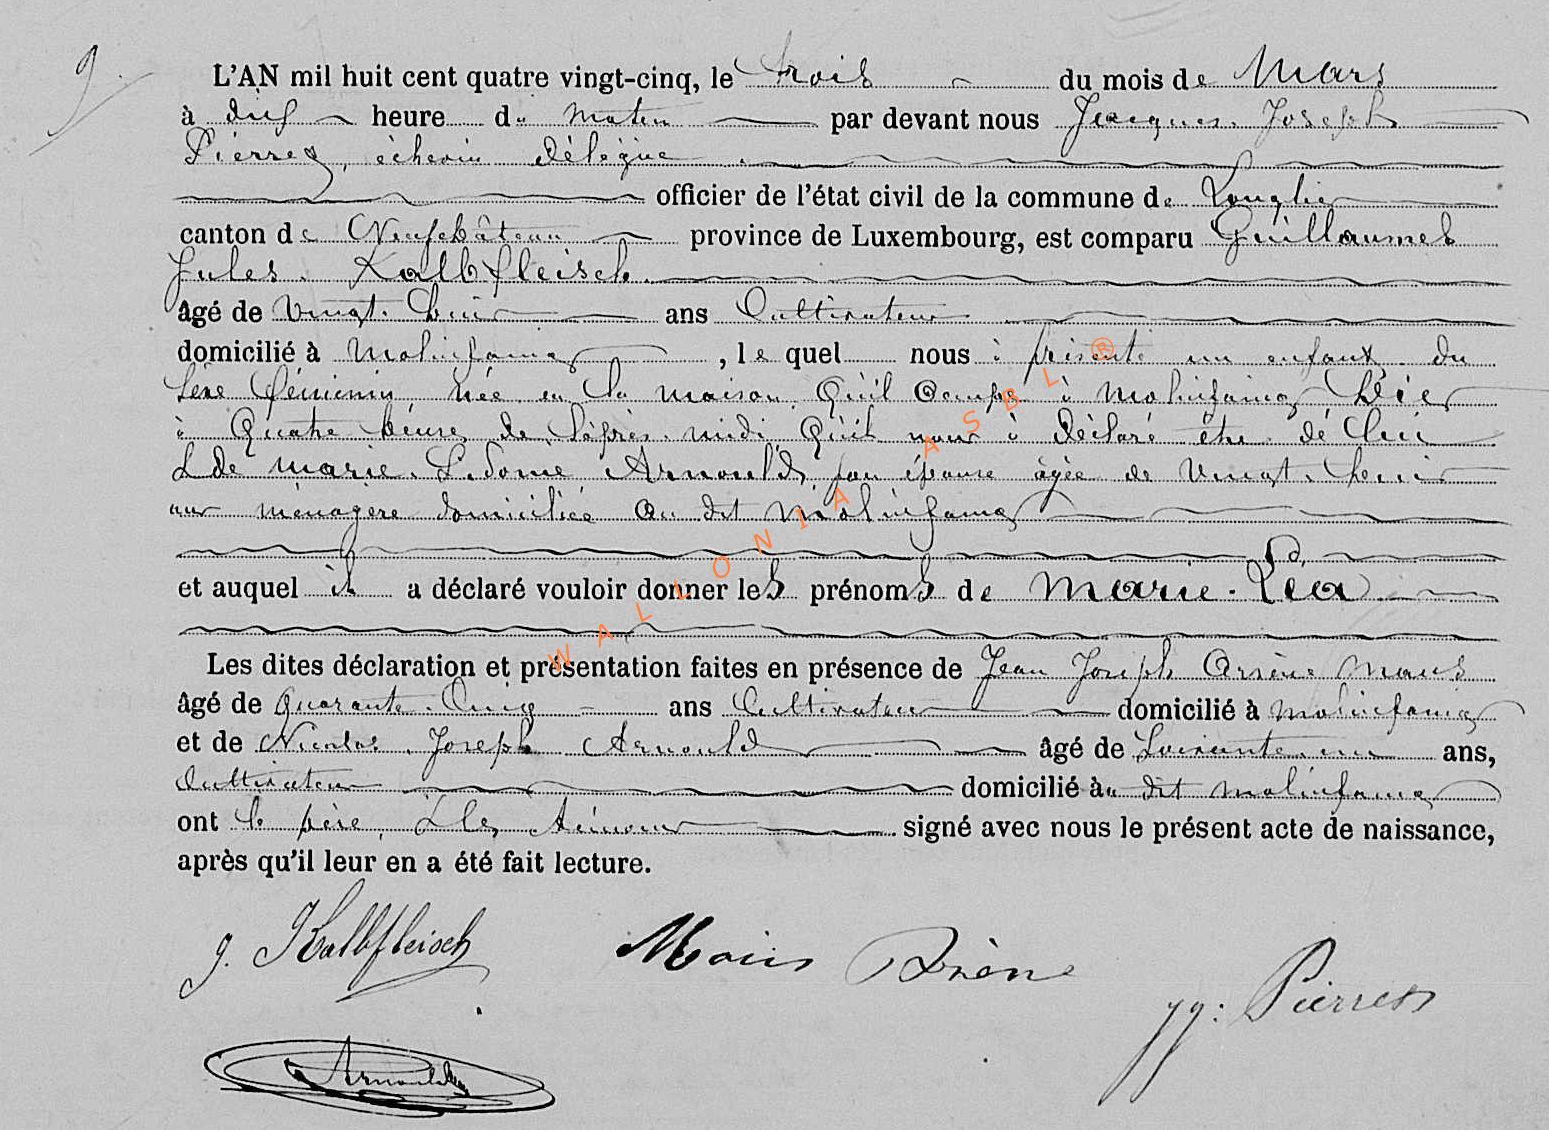 9.
L'AN mil huit cent quatre vingt-cinq, le trois du mois de Mars
à dix heure du matin par devant nous Jacques Joseph
Pierret, échevin délégué
officier de l'état civil de la commune de Longlier
canton de Neufchâteau province de Luxembourg, est comparu Guillaumes
Jules Kalbfleisch
âgé de vingt huit ans Cultivateur
domicilié à Molinfaing, le quel nous à présenté un enfant du
sexe féminin, née en la maison qu'il occupe à Molinfaing, hier
à quatre heures de l'après midi, qu'il nous à déclaré être de lui
& de marie Arnould, son épouse âgée de vingt huit
ans ménagère domiciliée au dit molinfaing
et auquel il a déclaré vouloir donner les prénoms de marie Léa
Les dites déclaration et présentation faites en présence de Jean Joseph Arsène Maus
âgé de quarante cinq ans Cultivateur domicilié à molinfaing
et de Nicolas Joseph Arnould âgé de soixante un ans,
Cultivateur domicilié àu dit molinfaing
ont le père, & les témoins signé avec nous le présent acte de naissance,
après qu'il leur en a été fait lecture.
J. Kalbfleisch
Maus Arsène
JJ: Pierret
Arnould
WALLONIA ASBL ®